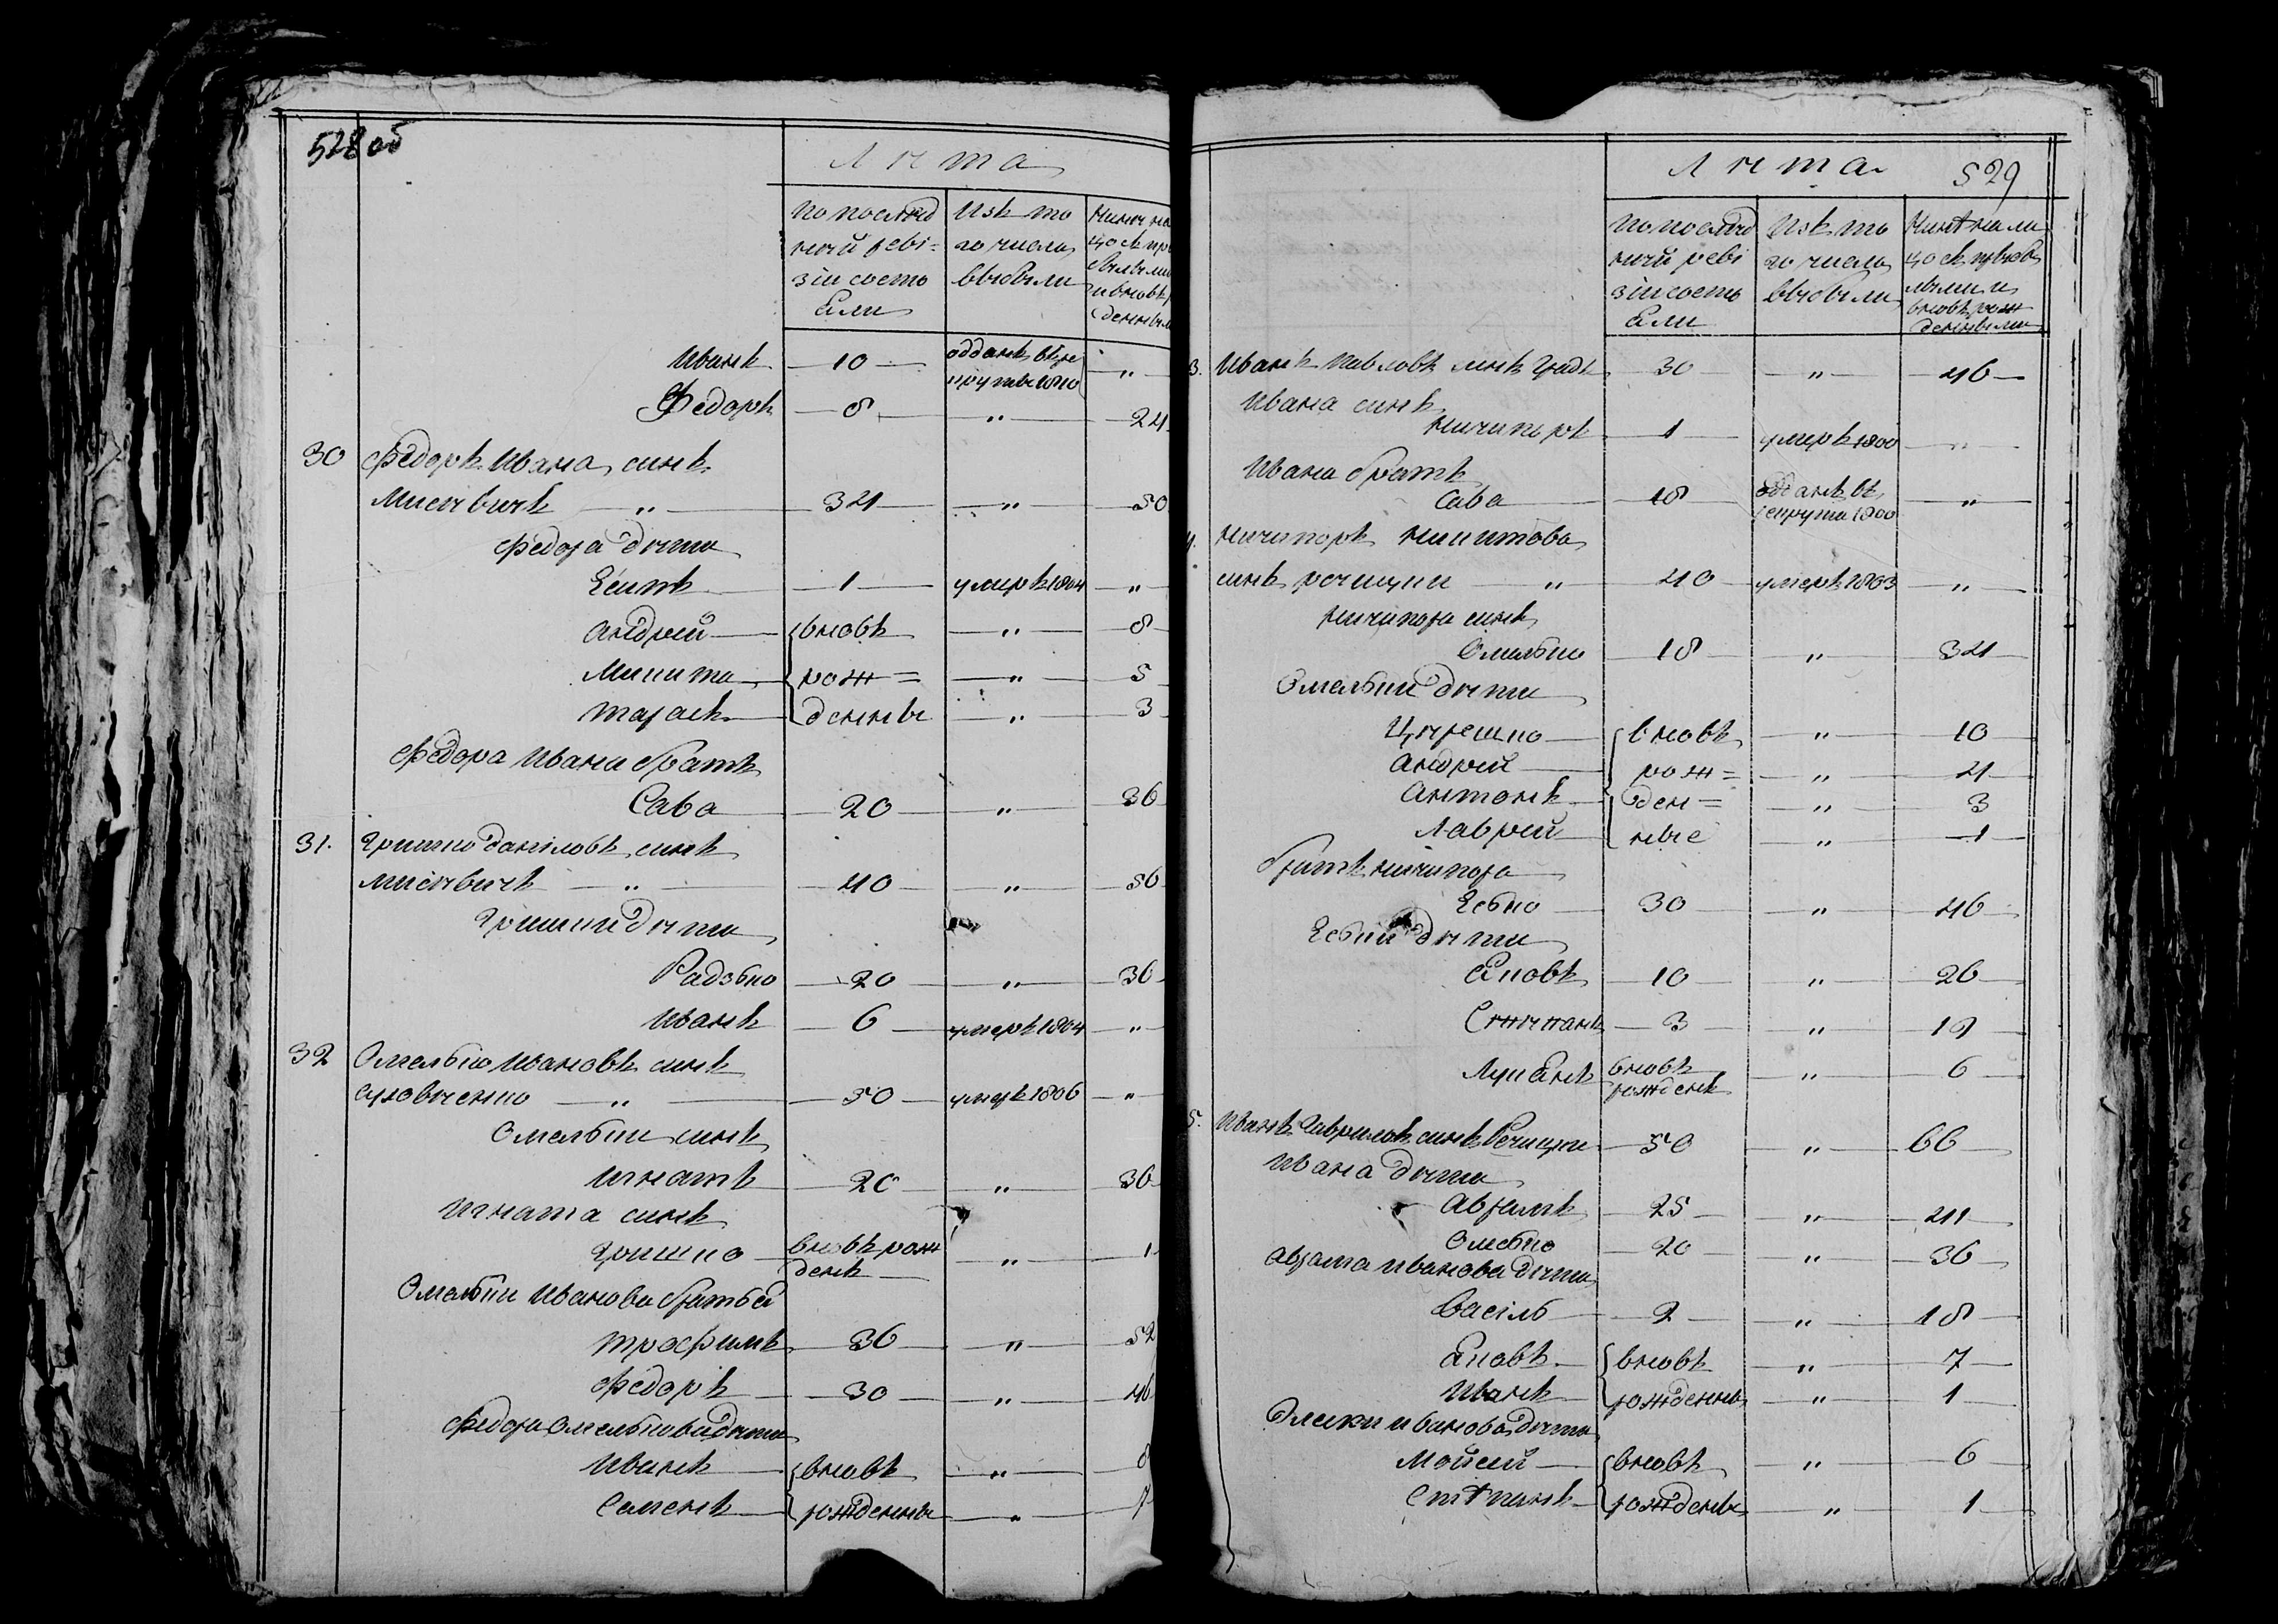 528 об
Лѣта
По послѣд
ней реві=
зіи состо
яли
Изъ то
го числа
выбыли
Иванъ — 10 — отданъ въ ре
круты 1810 — „
Федоръ — 8 — „ — 24
30 Федоръ Ивана синъ
Мисевичъ — „ — 34 — „ — 50
Федора дѣти
Есипъ — 1 — умеръ 1804 — „
Андрей — вновь — „ — 8
Микита — рож= — „ — 5
Тарасъ — денны — „ — 3
Федора Ивана братъ
Сава — 20 — „ — 36
31. Гришко Даніловъ синъ
Мисевичъ — „ — 40 — „ — 56
Гришки дѣти
Радзько — 20 — „ — 36
Иванъ — 6 — умеръ 1804 — „
32 Омелько Ивановъ синъ
— „ — 50 — умеръ 1806 — „
Омельки синъ
Игнатъ — 20 — „ — 36
Игната синъ
Гришко — вновь рож
денъ — „ — 1
Омельки Иванова братья
Трохимъ — 36 — „ — 52
Федоръ — 30 — „ — 46
Федора дѣти
Иванъ — вновь — „ — 8
Семенъ — рожденны — „ — 7
Лѣта 529
По послѣд
ней реві
зіи состо
яли
Изъ то
го числа
выбыли
Нинѣ на ли
цо съ прибы
лыми и
вновь рож
денными
3. Иванъ Павловъ синъ — 30 — „ — 46
Ивана синъ
Ничипоръ — 1 — умеръ 1800 — „
Ивана братъ
Сава — 18 — отданъ въ
рекрута 1800 — „
4. Ничипоръ Микитова
синъ Речицки „ — 40 — умеръ 1803 — „
Ничипора синъ
Омелько — 18 — „ — 34
Омельки дѣти
Цѣрешко — вновь — „ — 10
Андрей — рож= — „ — 4
Антонъ — ден= — „ — 3
Лаврей — ные — „ — 1
братъ Ничипора
Есько — 30 — „ — 46
Еськи дѣти
Яковъ — 10 — „ — 26
Стѣпанъ — 3 — „ — 19
Лукянъ — вновь
рожденъ — „ — 6
5. Иванъ Гавриловъ синъ Речицки — 50 — „ — 66
Ивана дѣти
Аврамъ — 25 — „ — 41
— 20 — „ — 36
Аврама Иванова дѣти
Васіль — 2 — „ — 18
Яковъ — вновь — „ — 7
Иванъ — рожденны — „ — 1
Иванова дѣти
Мойсей — вновь — „ — 6
Стѣпанъ — рожденны — „ — 1